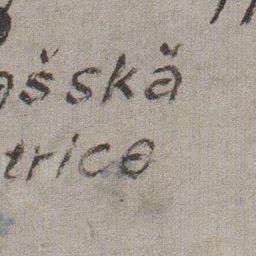 ašskă
trice